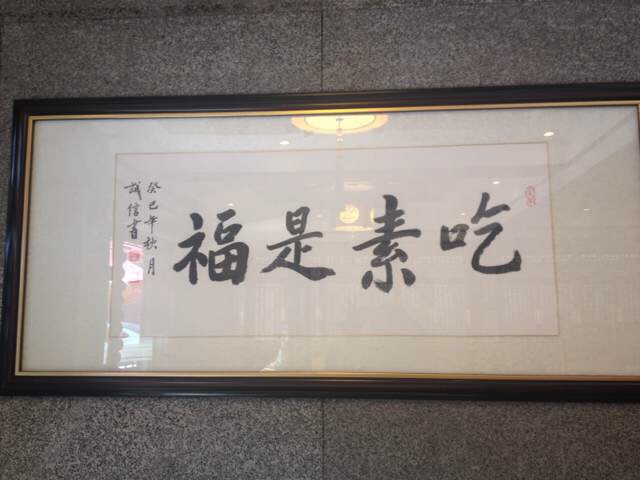 吃素是福
癸巳年秋月
誠信書